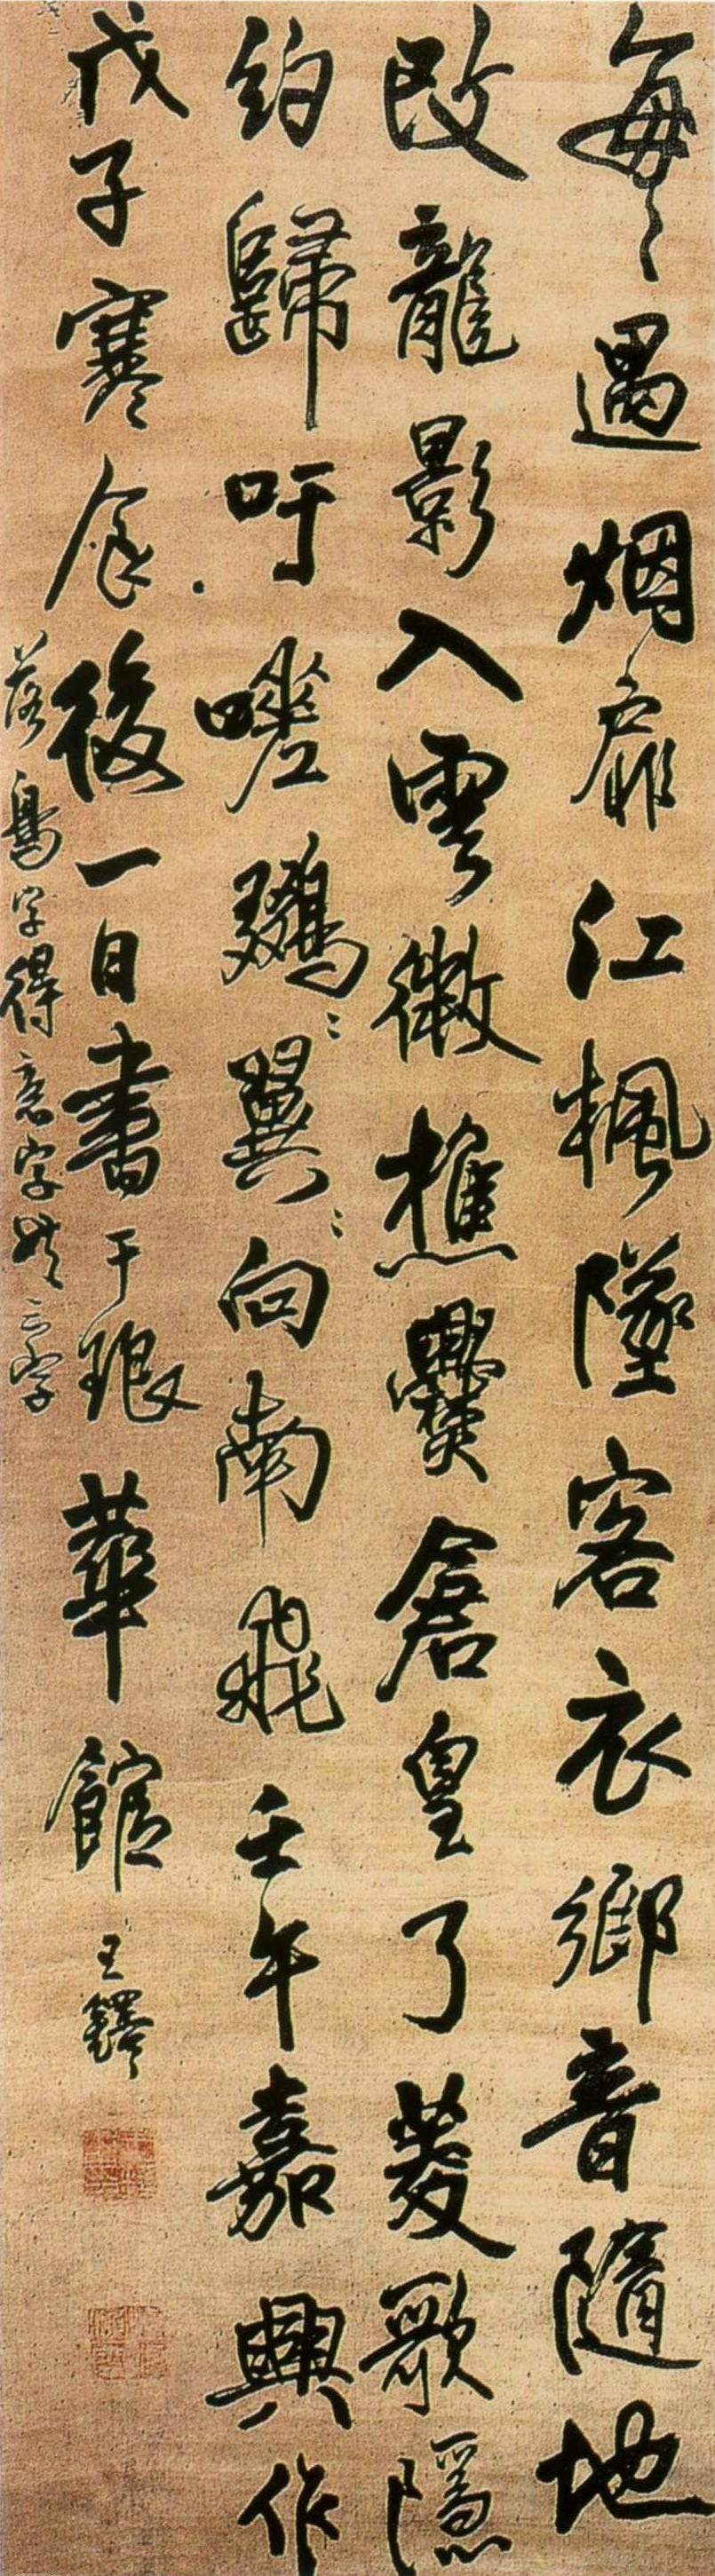 每〻遇烟扉江楓墜客衣鄉音隨地
改龍影入雲微樵爨倉皇了菱歌隱
約歸吁嗟翼向南飛壬午嘉興作
戊子寒食後一日書于琅華館 王鐸
落鳥字得意字共三字